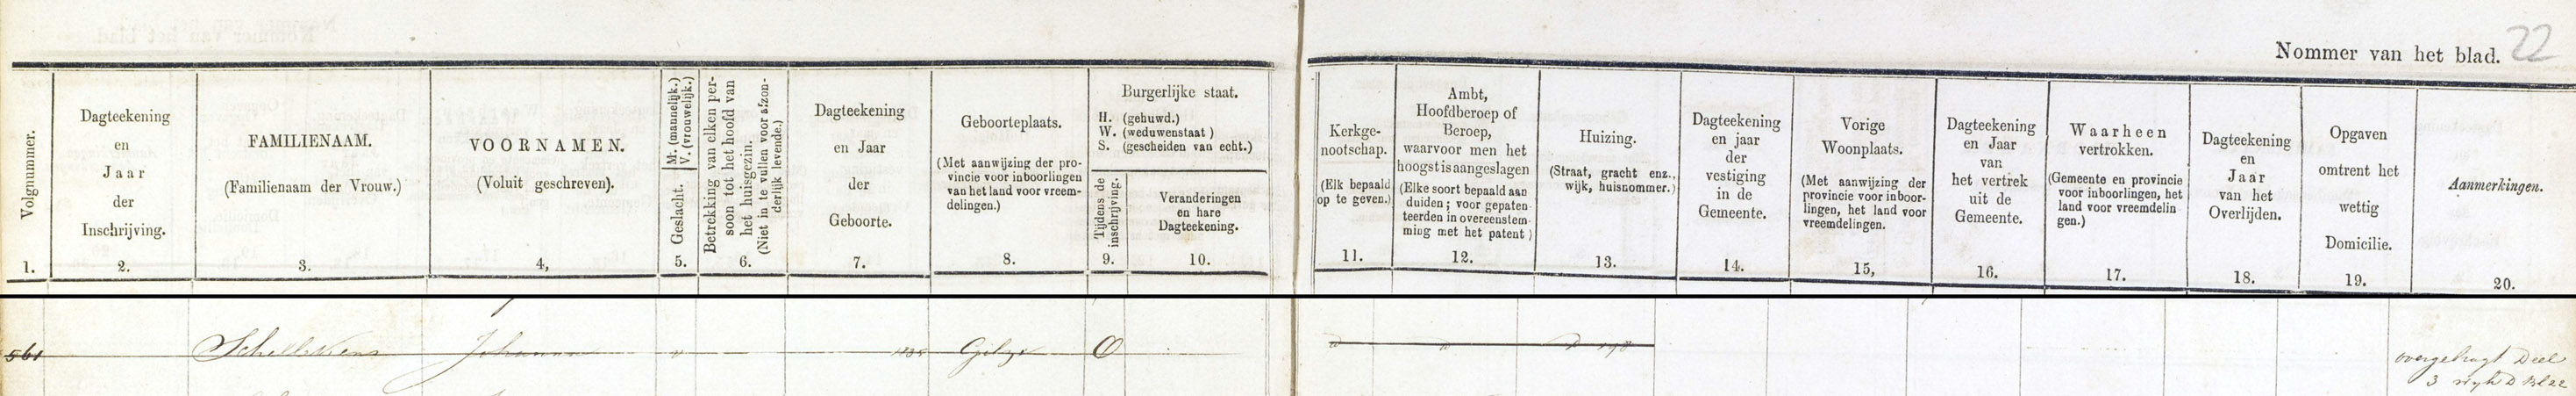 Nommer van het blad. 22
Volgnummer.
1.
Dagteekening
en
Jaar
der
Inschrijving.
2.
FAMILIENAAM.
(Familienaam der Vrouw.)
3.
VOORNAMEN.
(Voluit geschreven).
4,
Geslacht.
M: (mannelijk.)
V. (vrouwelijk.)
5.
Betrekking van elken per-
soon tot het hoofd van
het huisgezin.
(Niet in te vullen voor afzon-
derlijk levende.)
6.
Dagteekening
en Jaar
der
Geboorte.
7.
Geboorteplaats.
(Met aanwijzing der pro-
vincie voor inboorlingen
van het land voor vreem-
delingen.)
8.
Burgerlijke staat.
H. (gehuwd.)
W. (weduwenstaat)
S. (gescheiden van echt.)
Tijdens de
inschrijving.
9.
Veranderingen
en hare
Dagteekening.
10.
Kerkge-
nootschap.
(Elk bepaald
op te geven.)
11.
Ambt,
Hoofdberoep of
Beroep,
waarvoor men het
hoogst is aangeslagen
(Elke soort bepaald aan
duiden; voor gepaten
teerden in overeenstem
ming met het patent)
12.
Huizing.
(Straat, gracht enz.,
wijk, huisnommer.)
13.
Dagteekening
en jaar
der
vestiging
in de
Gemeente.
14.
Vorige
Woonplaats.
(Met aanwijzing der
provincie voor inboor-
lingen, het land voor
vreemdelingen.
15,
Dagteekening
en Jaar
van
het vertrek
uit de
Gemeente.
16.
Waarheen
vertrokken.
(Gemeente en provincie
voor inboorlingen, het
land voor vreemdelin
gen.)
17.
Dagteekening
en
Jaar
van het
Overlijden.
18.
Opgaven
omtrent het
wettig
Domicilie.
19.
Aanmerkingen.
20.
561 Schellekens Johanna v 1835 Gilze O " " D 198
overgebragt Deel
3 wyk D Bl 22